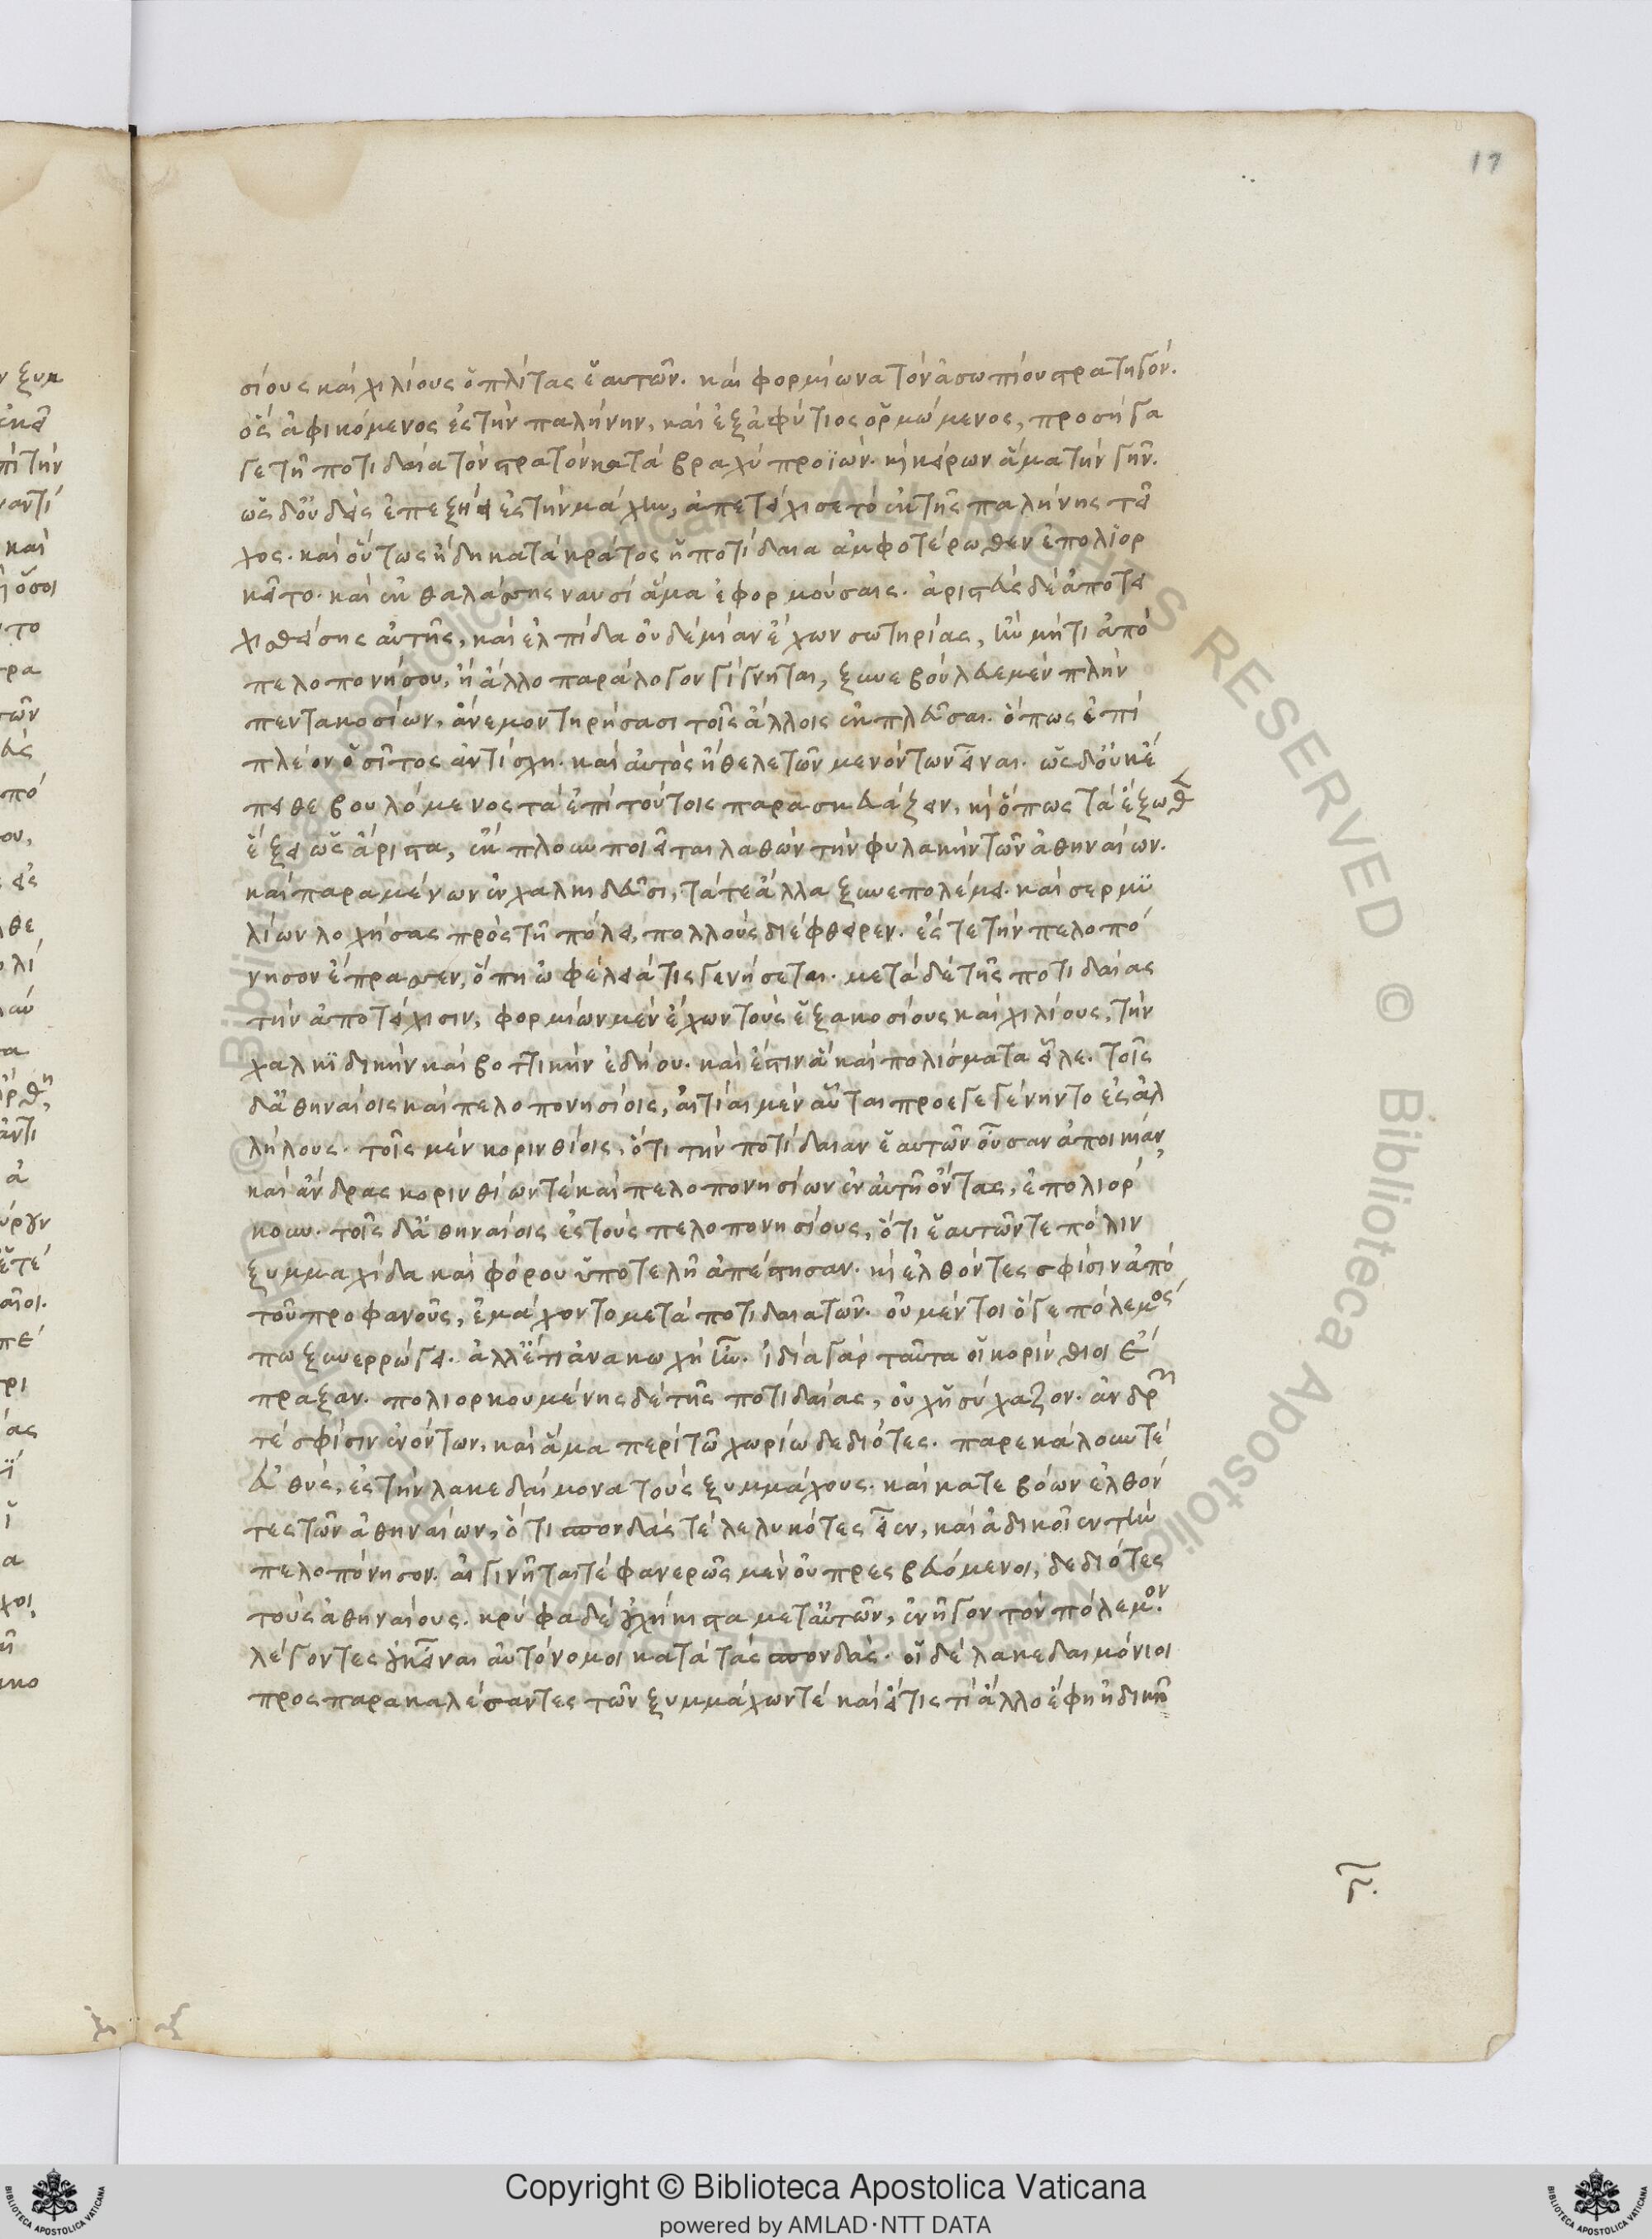 17
σίους καὶ χιλίους ὁπλίτας ἑαυτῶν. καὶ φορμίωνα τὸν ἀσωπίου στρατηγόν.
ὃς ἀφικόμενος ἐς τὴν παλήνην, καὶ ἐξ ἀφύτιος ὁρμώμενος, προσήγα
γε τῇ ποτιδαία τὸν στρατὸν κατὰ βραχὺ προϊών. κὶ κείρων ἅμα τὴν γῆν.
ὡς δ' οὐδεὶς ἐπεξήει ἐς τὴν μάχην, ἀπετείχισε τὸ ἐκ τῆς παλήνης τεῖ
χος. καὶ οὕτως ἤδη κατὰ κράτος ἡ ποτίδαια ἀμφοτέρωθεν ἐπολιορ
κεῖτο. καὶ ἐκ θαλάσσης ναυσὶ ἅμα ἐφορμούσαις. ἀριστεὺς δὲ ἀποτει
χισθείσης αὐτῆς, καὶ ἐλπίδα οὐδεμίαν ἔχων σωτηρίας, ἢν μή τι ἀπὸ
πελοπονήσου, ἢ ἄλλο παράλογον γίγνηται, ξυνεβούλευε μὲν πλὴν
πεντακοσίων, ἄνεμον τηρήσασι τοῖς ἄλλοις ἐκπλεῦσαι. ὅπως ἐπὶ
πλέον ὁ σῖτος ἀντίσχη. καὶ αὐτὸς ἤθελε τῶν μενόντων εἶναι. ὡς δ' οὐκ ἔ
πειθε βουλόμενος τὰ ἐπὶ τούτοις παρασκευάζειν, κὶ ὅπως τὰ ἔξωθεν
ἕξει ὡς ἄριστα, ἔκπλουν ποιεῖται λαθὼν τὴν φυλακὴν τῶν ἀθηναίων.
καὶ παραμένων ἐν χαλκιδεῦσι, τά τε ἄλλα ξυνεπολέμει. καὶ σερμυ
λίων λοχήσας πρὸς τῇ πόλει, πολλοὺς διέφθειρεν. ἔς τε τὴν πελοπό
νησον ἔπρασσεν, ὅπη ὠφέλειά τις γενήσεται. μετὰ δὲ τῆς ποτιδαίας
τὴν ἀποτείχισιν, φορμίων μὲν ἔχων τοὺς ἑξακοσίους καὶ χιλίους, τὴν
χαλκιδικὴν καὶ βοττικὴν ἐδήου. καὶ ἔστιν ἃ καὶ πολίσματα εἷλε. τοῖς
δ' ἀθηναίοις καὶ πελοπονησίοις, αἰτίαι μὲν αὗται προεγεγένηντο ἐς ἀλ
λήλους. τοῖς μὲν κορινθίοις, ὅτι τὴν ποτίδαιαν ἑαυτῶν οὖσαν ἀποικίαν,
καὶ ἄνδρας κορινθίων τὲ καὶ πελοπονησίων ἐν αὐτῇ ὄντας, ἐπολιόρ
κουν. τοῖς δ' ἀθηναίοις ἐς τοὺς πελοπονησίους, ὅτι ἑαυτῶν τε πόλιν
ξυμμαχίδα καὶ φόρου ὑποτελῆ ἀπέστησαν. κὶ ἐλθόντες σφίσιν ἀπὸ
τοῦ προφανοῦς, ἐμάχοντο μετὰ ποτιδαιατῶν. οὐ μέντοι ὅ γε πόλεμος
πω ξυνερρώγει. ἀλλ' ἔτι ἀνακωχὴ ἦν. ἰδία γὰρ ταῦτα οἱ κορίνθιοι ἔ
πραξαν. πολιορκουμένης δὲ τῆς ποτιδαίας, οὐχ ἡσύχαζον. ἀνδρῶν
τέ σφίσιν ἐνόντων, καὶ ἅμα περὶ τῶ χωρίω δεδιότες. παρεκάλουν τὲ
εὐθὺς, ἐς τὴν λακεδαίμονα τοὺς ξυμμάχους. καὶ κατεβόων ἐλθόν
τες τῶν ἀθηναίων, ὅτι σπονδάς τὲ λελυκότες εἶεν, καὶ ἀδικοῖεν τὴν
πελοπόνησον. αἰγινῆταί τὲ φανερῶς μὲν οὐ πρεσβευόμενοι, δεδιότες
τοὺς ἀθηναίους. κρύφα δὲ οὐχ ἥκιστα μετ' αὐτῶν, ἐνῆγον τὸν πόλεμον.
λέγοντες οὐκ εἶναι αὐτόνομοι κατὰ τὰς σπονδάς. οἱ δὲ λακεδαιμόνιοι
προσπαρακαλέσαντες τῶν ξυμμάχων τὲ καὶ εἴ τις τὶ ἄλλο ἔφη ἠδικῆ
Copyright © Biblioteca Apostolica Vaticana
powered by AMLAD·NTT DATA